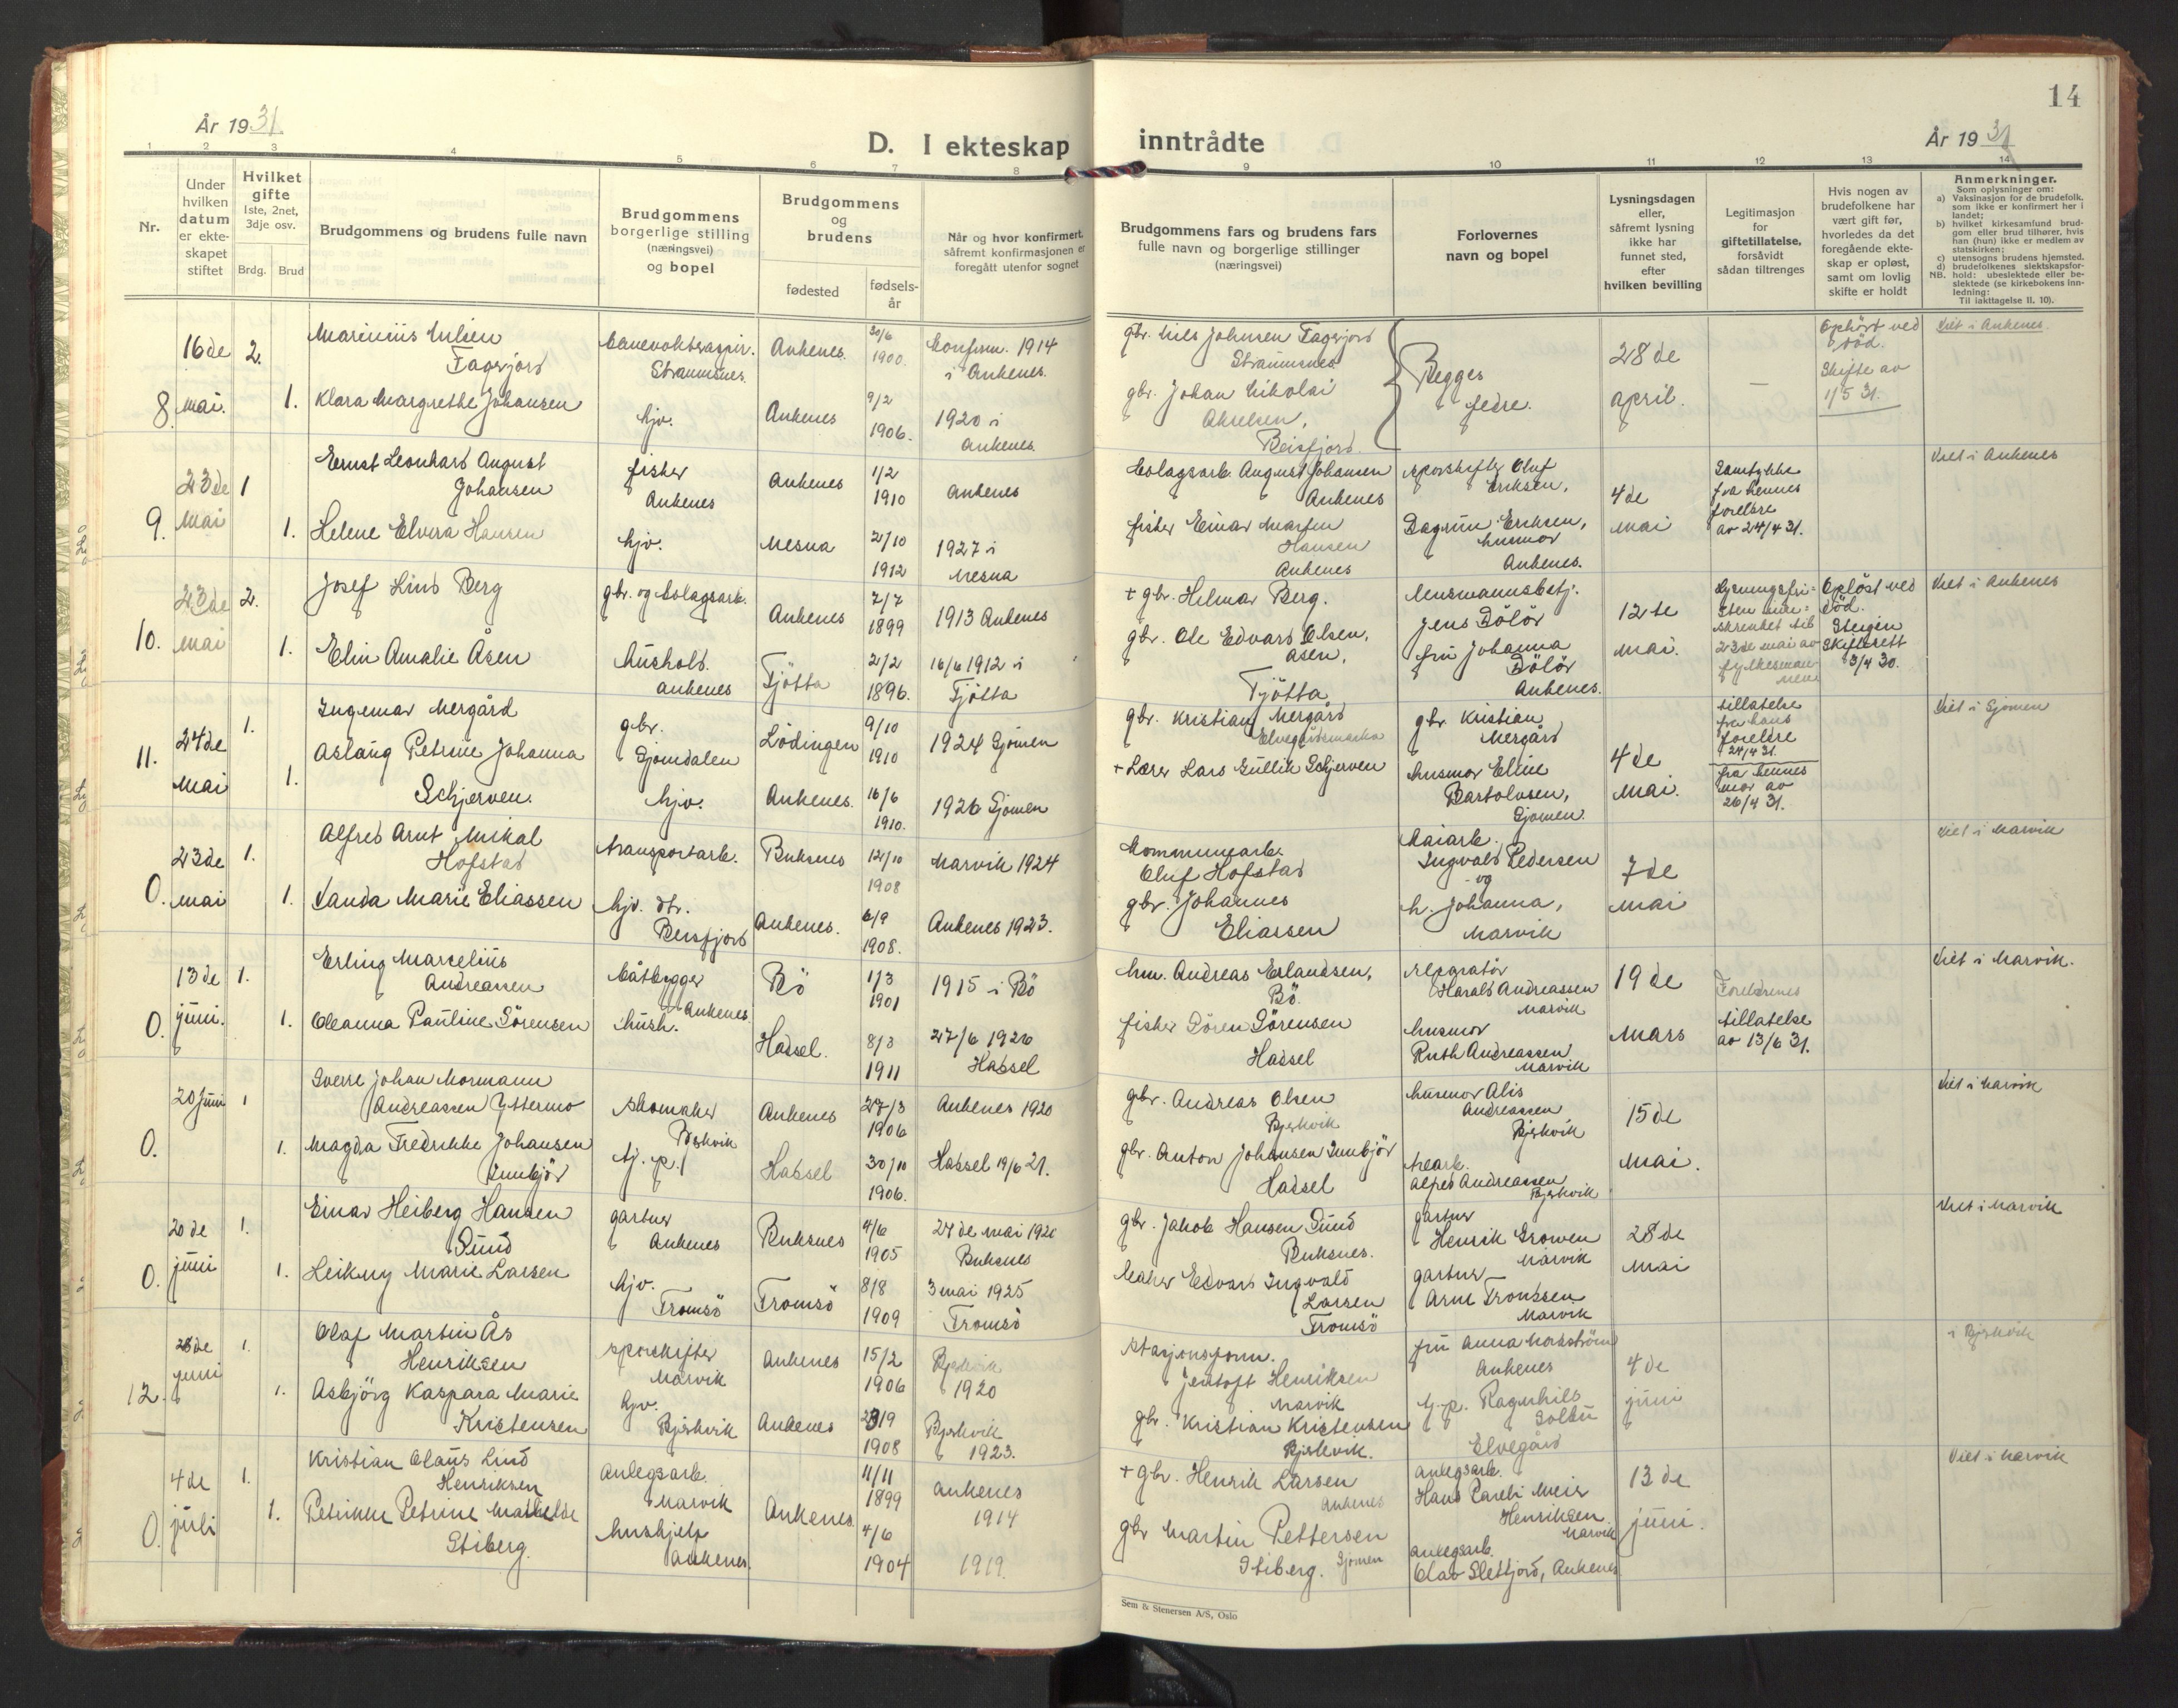 År 1931
D. I ekteskap
inntrådte
År 1931
14
1 2 3 4 5 6 7 8
9 10 11 12 13 14
Nr.
Under
hvilken
datum
er ekte-
skapet
stiftet
Hvilket
gifte
1ste, 2net,
3dje osv.
Brdg. Brud
Brudgommens og brudens fulle navn
Brudgommens
borgerlige stilling
(næringsvei)
og bopel
Brudgommens
og
brudens
fødested
fødsels-
år
Når og hvor konfirmert,
såfremt konfirmasjonen er
foregått utenfor sognet
Brudgommens fars og brudens fars
fulle navn og borgerlige stillinger
(næringsvei)
Forlovernes
navn og bopel
Lysningsdagen
eller,
såfremt lysning
ikke har
funnet sted,
efter
hvilken bevilling
Legitimasjon
for
giftetillatelse,
forsåvidt
sådan tiltrenges
Hvis nogen av
brudefolkene har
vært gift før,
hvorledes da det
foregående ekte-
skap er opløst,
samt om lovlig
skifte er holdt
Anmerkninger.
Som oplysninger om:
a) Vaksinasjon for de brudefolk,
som ikke er konfirmert her i
landet;
b) hvilket kirkesamfund brud-
gom eller brud tilhører, hvis
han (hun) ikke er medlem av
statskirken;
c) utensogns brudens hjemsted.
d) brudefolkenes slektskapsfor-
NB. hold: ubeslektede eller be-
slektede (se kirkebokens inn-
ledning:
Til iakttagelse II. 10).
8. 16de mai. 2. 1.
Fagerjord
Klara Margrethe Johansen
Straumsnes.
hjv.
Ankenes. 30/6 1900.
Ankenes 9/2 1906.
Konfirm. 1914
i Ankenes.
1920 i
Ankenes.
gbr. Nils Johnsen Fagerjord
Straumsnes
gbr. Johan Nikolai
Beisfjord.
Begges
fedre.
28de
april.
—
Ophørt ved
död.
Skifte av
1/5 31.
Viet i Ankenes.
9. 23de mai 1 1.
Ernst Leonhard August
Johansen
Helene Elvira Hansen
fisker
Ankenes
hjv.
Ankenes 1/2 1910
Nesna 21/10 1912
Ankenes
1927 i
Nesna
August Johansen
Ankenes
fisker Einar Martin
Hansen
Ankenes
Oluf
Eriksen,
Dagrun Eriksen,
husmor
Ankenes.
4de
mai
Samtykke
fra hennes
foreldre
av 24/4 31.
Viet i Ankenes
10. 23de mai 2. 1.
Josef Lind Berg
Elin Amalie Åsen
gbr. og bolagsarb.
Hushold.
Ankenes
Ankenes 7/7 1899
Tjötta 2/2 1896.
1913 Ankenes
16/6 1912 i
Tjötta
+ gbr. Hilmar Berg.
gbr. Ole Edvard Olsen,
Åsen,
Tjötta
Jens Dölör
fru Johanna
Dölör
Ankenes.
12te
mai.
23de mai av
Oplöst ved
död.
Steigen
Skifterett
3/4 30.
Viet i Ankenes
11. 24de mai 1. 1.
Ingemar Mergård
Aslaug Petrine Johanna
Schjerven.
gbr.
hjv.
Lödingen 9/10 1910
Ankenes. 16/6 1910.
1924 Sjomen
1926 Sjomen
gbr. Kristian Mergård
Elvegårdsmarka
+ Lærer Lars Gullik Schjerven
gbr. Kristian
Mergård
husmor Eline
Bartolvsen,
Sjomen.
4de
mai.
tillatelse
fra hans
foreldre
24/4 31.
fra hennes
mor av
26/4 31.
Viet i Sjomen
0. 23de mai 1. 1.
Alfred Arnt Mikal
Hofstad
Vanda Marie Eliassen
transportarb.
hjv. dtr.
Beisfjord
Buksnes 12/10 1908
Ankenes. 6/9 1908.
Narvik 1924
Ankenes 1923.
Kommunearb.
Oluf Hofstad
gbr. Johannes
Eliassen
Kaiarb.
Ingvald Pedersen
og
h. Johanna,
Narvik
7de
mai
Viet i Narvik
0. 13de juni. 1. 1.
Erling Marcelius
Andreassen
Oleanna Pauline Sörensen
båtbygger
Ankenes.
hush.
Bö 1/3 1901
Hadsel. 8/3 1911
1915 i Bö
27/6 1926
Hadsel
hm. Andreas Erlandsen,
Bö.
fisker Sören Sörensen
Hadsel
reparatör
Harald Andreassen
Narvik
husmor
Ruth Andreassen
Narvik
19de
mars
Foreldrenes
tillatelse
av 13/6 31.
Viet i Narvik.
0. 20 juni 1 1.
Sverre Johan Normann
Andreassen Yttermo
Magda Fredrikke Johansen
skomaker
Bjerkvik
tj. p.
Ankenes 27/3 1906
Hadsel 30/10 1906.
Ankenes 1920
Hadsel 19/6 21.
gbr. Andreas Olsen
Bjerkvik
gbr. Anton Johansen
Hadsel
husmor Alis
Andreassen
Bjerkvik
Alfred Andreassen
Bjerkvik
15de
mai.
Viet i Narvik
0. 20de juni 1. 1.
Einar Heiberg Hansen
Sund
Leikny Marie Larsen
gartner
Ankenes
hjv.
Tromsö
Buksnes 4/6 1905
Tromsö 8/8 1909
24de mai 1920
Buksnes
3 mai 1925
Tromsö
gbr. Jakob Hansen Sund
Buksnes.
baker Edvard Ingvald
Larsen
Tromsö
gartner
Henrik Growen
Narvik
gartner
Arne Trondsen
Narvik
28de
mai
Viet i Narvik
12. 28de juni 1. 1.
Olaf Martin Ås
Henriksen
Asbjörg Kaspara Marie
Kristensen
sporskifter
Narvik
hjv.
Bjerkvik
Ankenes 15/2 1906
Ankenes 1908
Bjerkvik
1920
Bjerkvik
1923.
stasjonsform.
Jentoft Henriksen
Narvik
gbr. Kristian Kristensen
Bjerkvik.
fru Anna
Ankenes
t. p. Ragnhild
Elvegård
4de
juni
i Bjerkvik
0. 4de juli 1. 1.
Kristian Olaus Lind
Henriksen
Petrikke Petrine Mathilde
Stiberg.
anlegsarb.
Narvik
hushjelp
Ankenes.
Ankenes. 11/11 1899
4/6 1904
Ankenes
1914
1919.
+ gbr. Henrik Larsen
Ankenes
gbr Martin Pettersen
Stiberg. Sjomen
anlegsarb.
Hans Pareli Meier
Henriksen
Narvik
anlegsarb.
Olav Slettjord, Ankenes
13de
juni.
Viet i Narvik
Sem & Stenersen A/S, Oslo